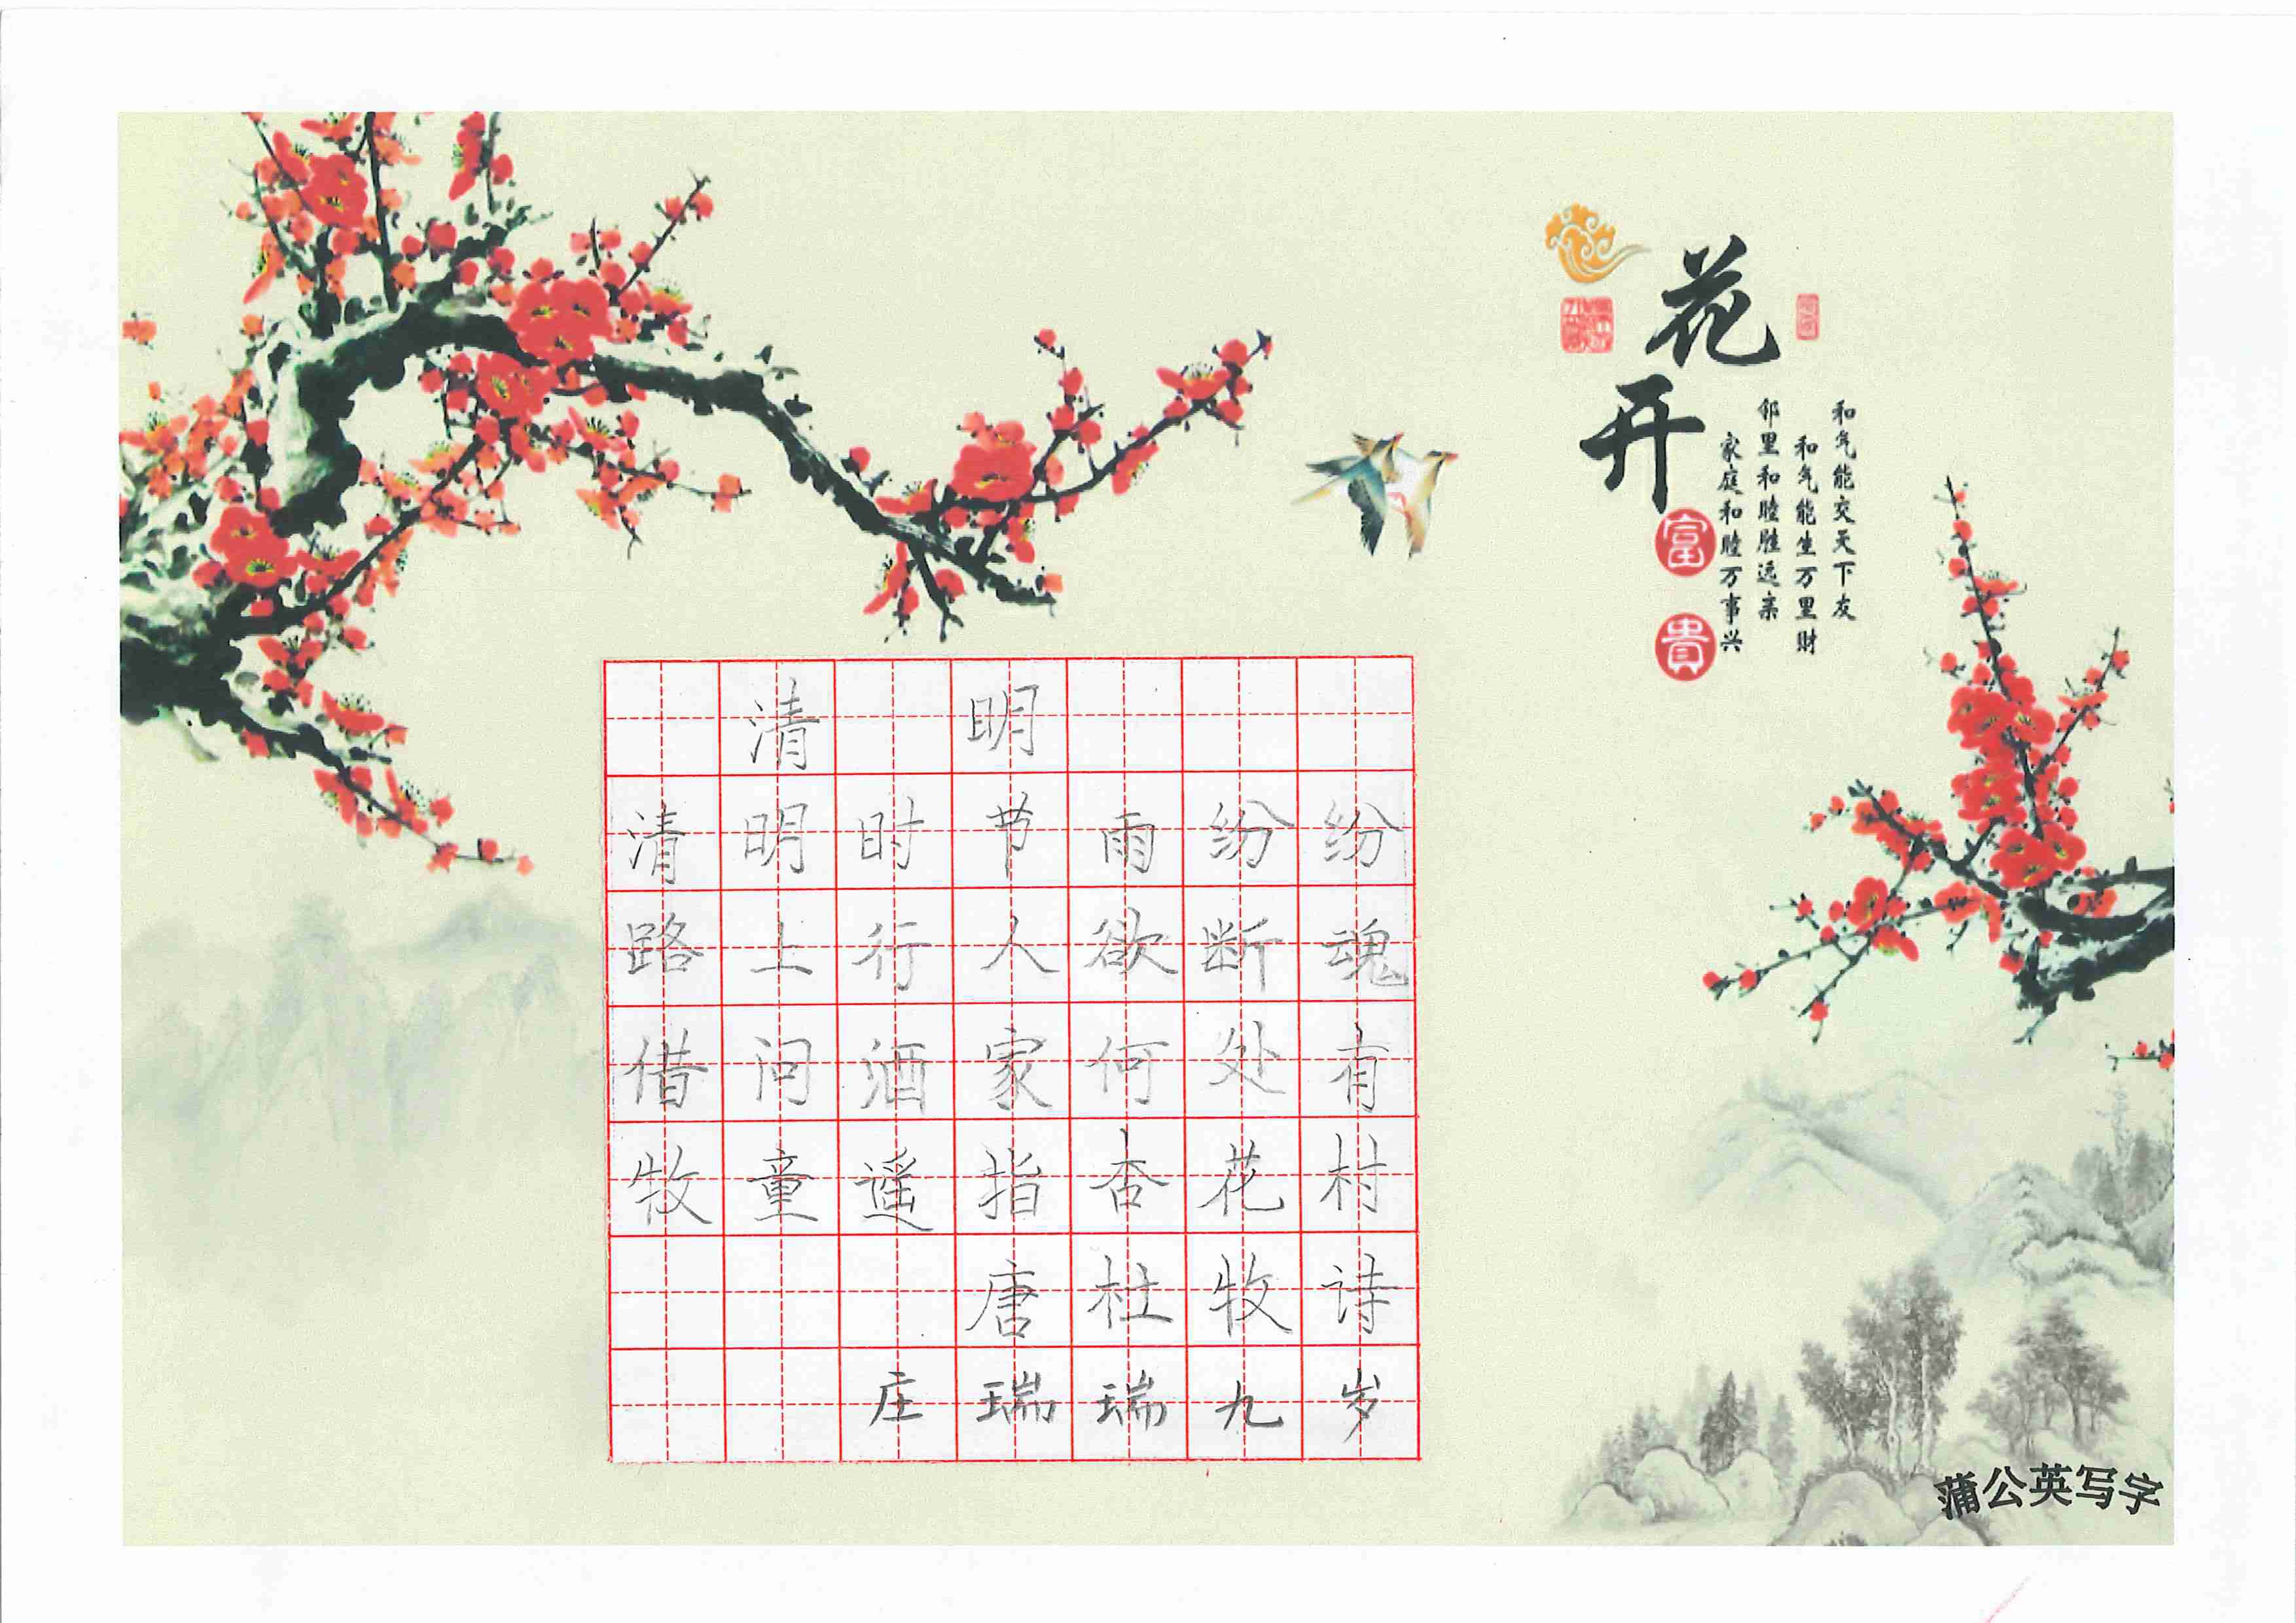 花开
富貴
和气能交天下友
和气能生万里财
邻里和睦胜远亲
家庭和睦万事兴
清明
清明时节雨纷纷
路上行人欲断魂
借问酒家何处有
牧童遥指杏花村
唐杜牧诗
庄瑞瑞九岁
蒲公英写字